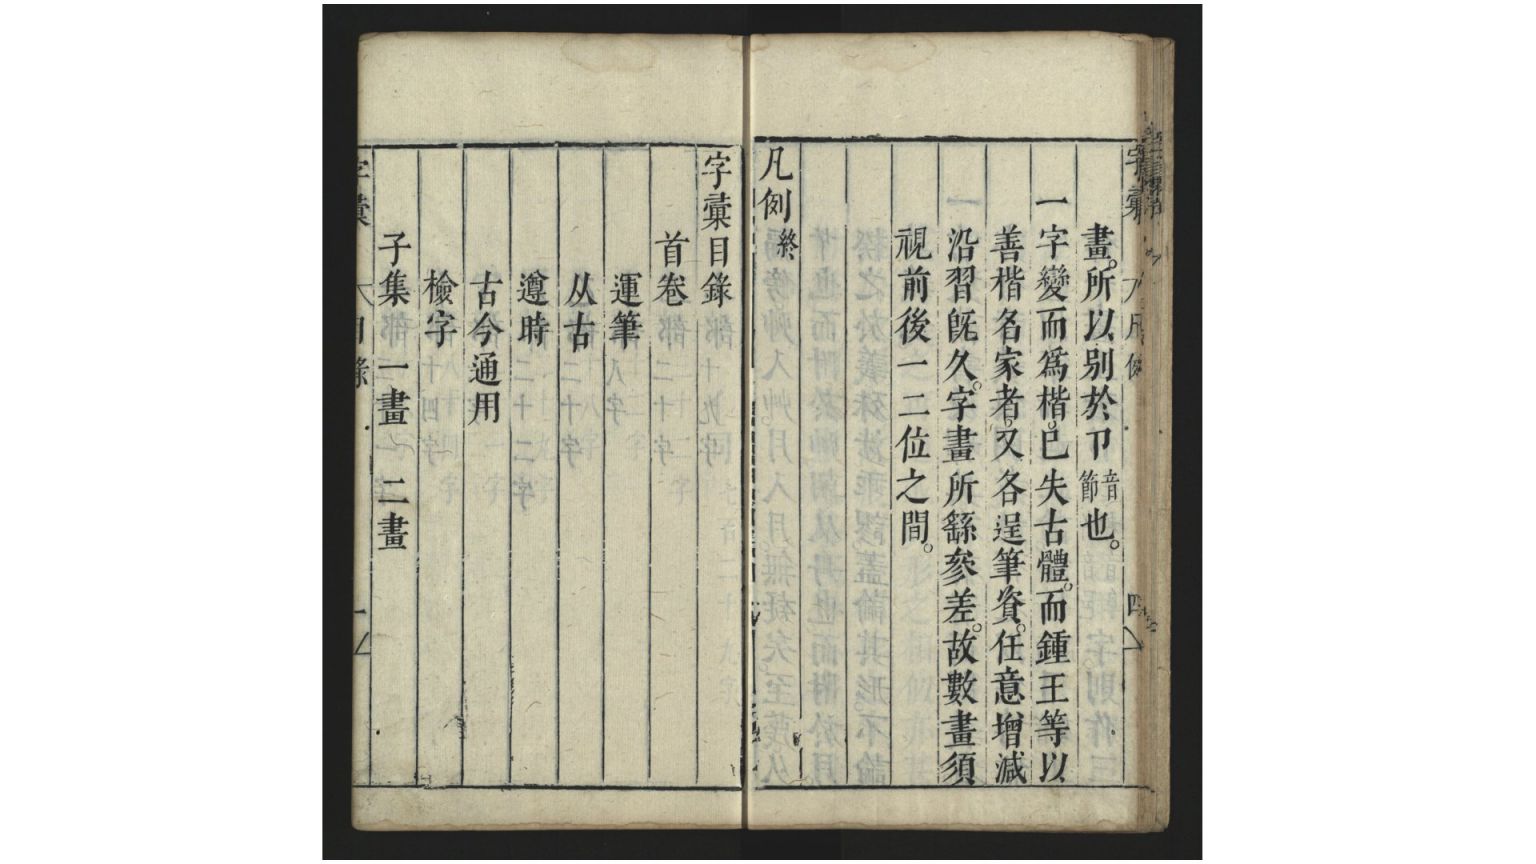 畫。所以別於卩音節也。
一字變而爲楷。已失古體。而鍾王等以
善楷名家者。又各逞筆資。任意增減
沿習旣久。字畫所繇參差。故數畫須
視前後一二位之間。
凡例終
字彙目錄
首卷
運筆
从古
遵時
古今通用
檢字
子集 一畫 二畫
字彙 目錄